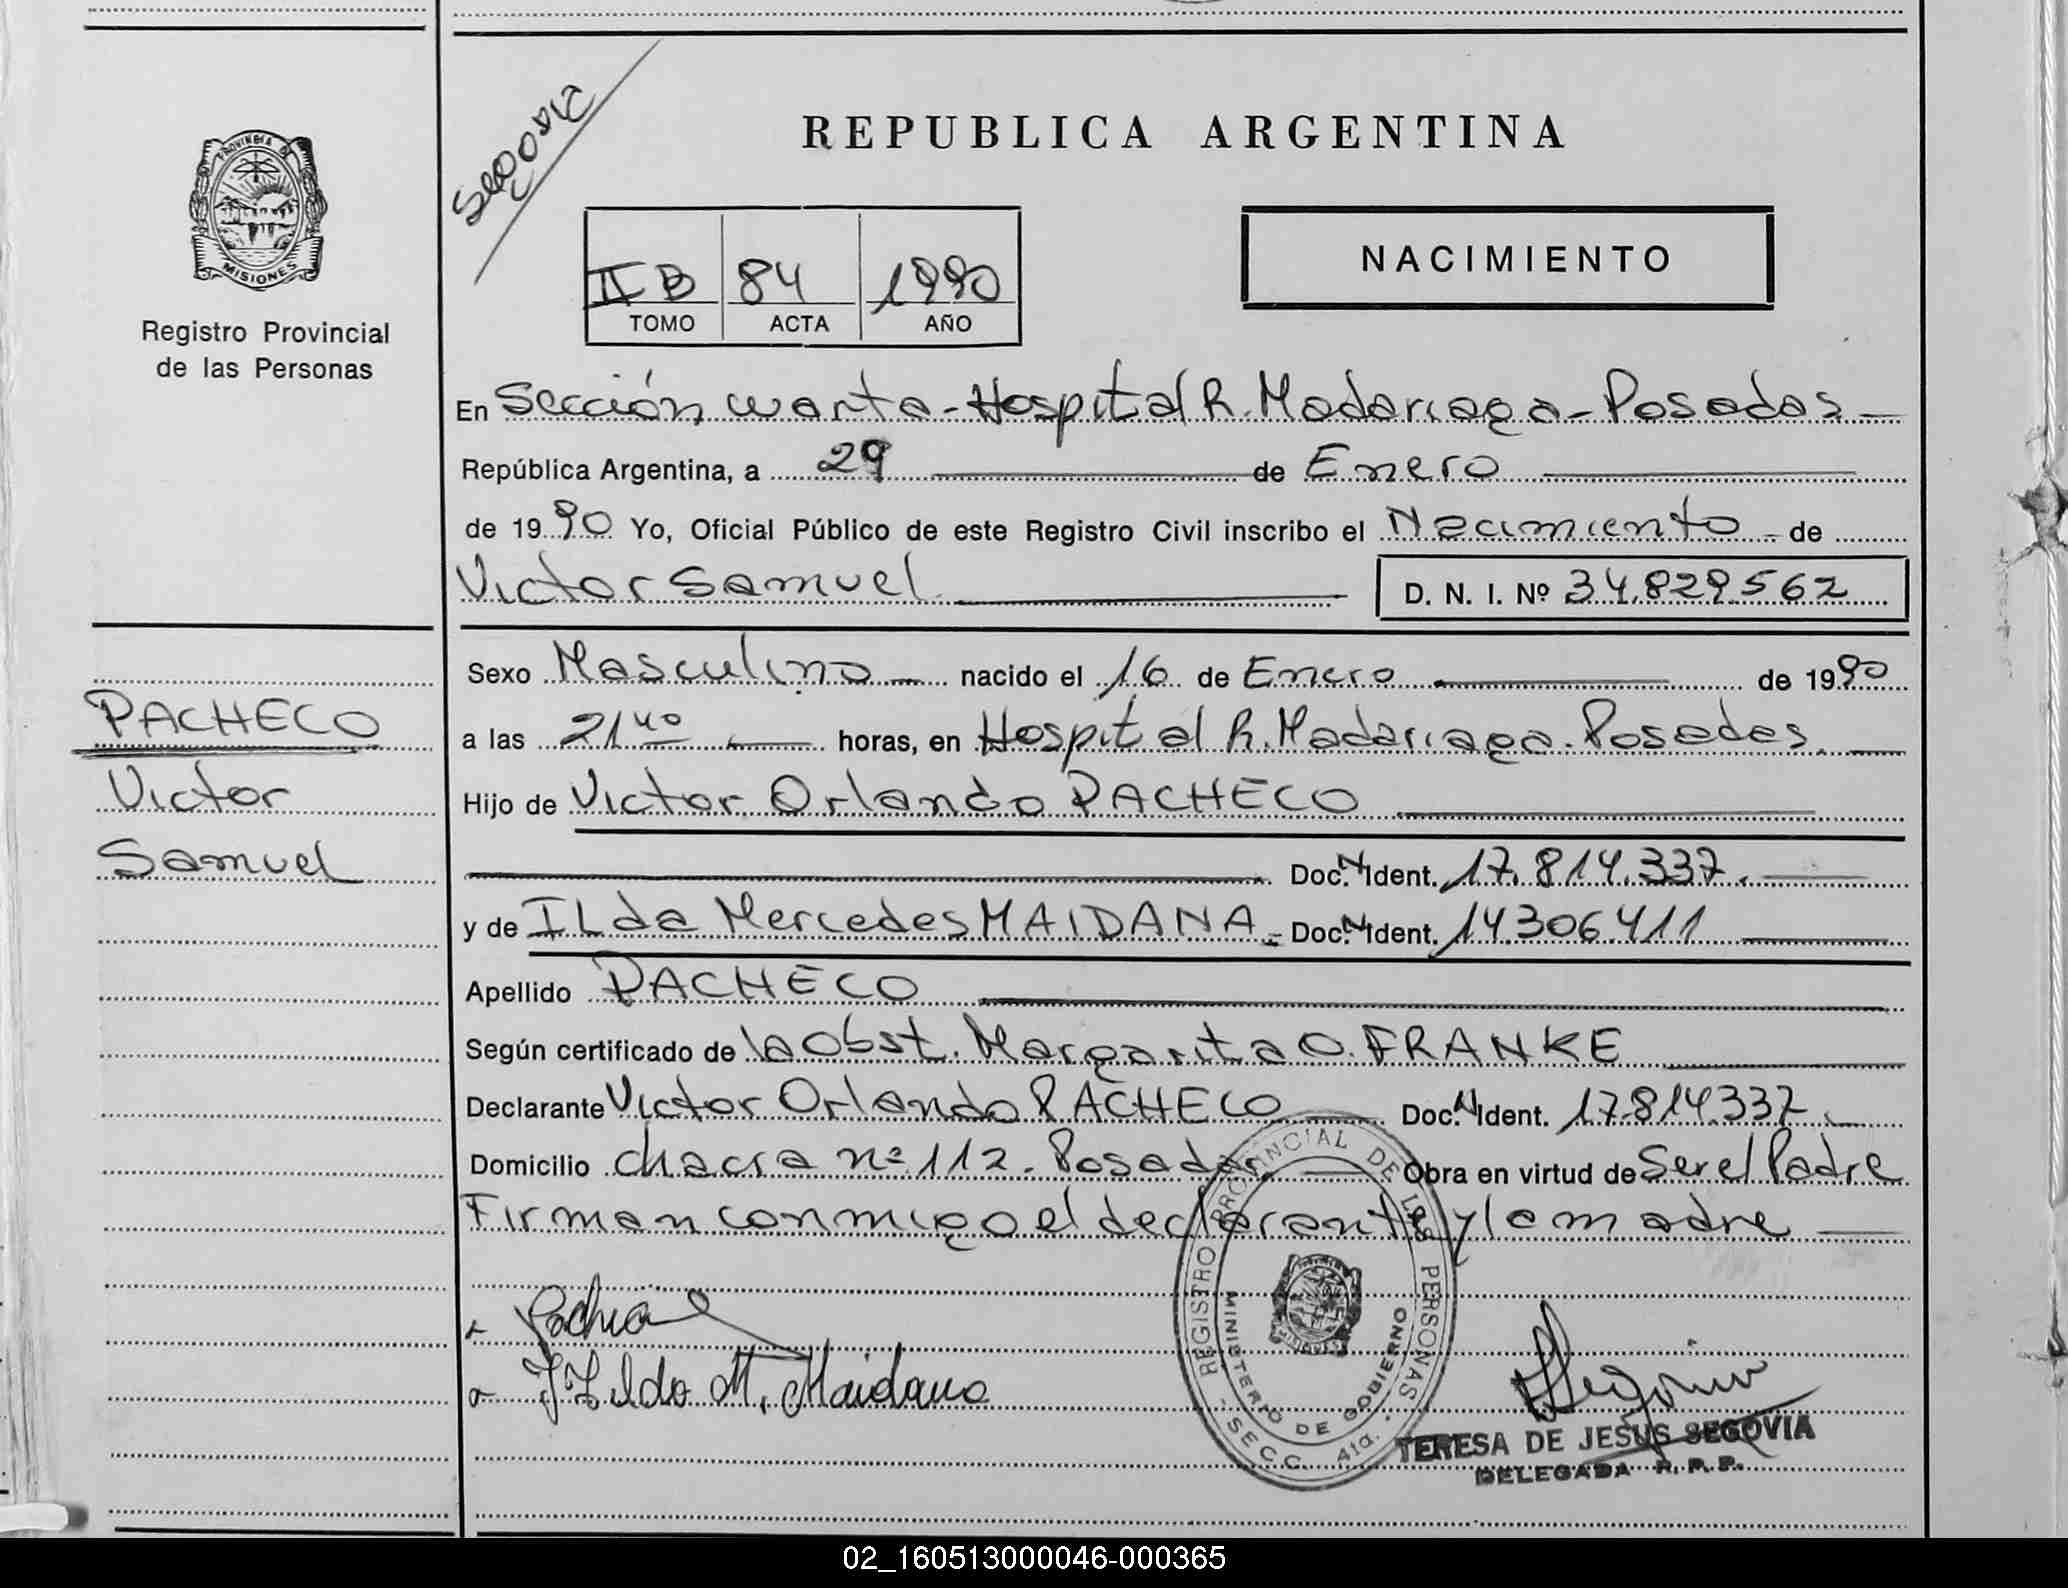 Segovia
REPUBLICA ARGENTINA
PROVINCIA D
MISIONES
Registro Provincial
de las Personas
II B 84 1990
TOMO ACTA AÑO
NACIMIENTO
En Sección cuarta - Hospital R. Madariaga - Posadas
República Argentina, a 29 de Enero
de 1990 Yo, Oficial Público de este Registro Civil inscribo el Nacimiento - de
Victor Samuel D. N. I. Nº 34.829.562
Sexo Masculino nacido el 16 de Enero de 1990
PACHECO
a las 21 40 horas, en Hospital R. Madariaga. Posadas.
Victor
Hijo de Victor Orlando PACHECO
Samuel
Doc. N Ident. 17.814.337.
y de ILda Mercedes MAIDANA.- Doc. N Ident. 14.306.411
Apellido PACHECO
Según certificado de la Obst. Margarita O. FRANKE
Declarante Victor Orlando PACHECO Doc. N Ident. 17.814.337.
Domicilio chacra nº 112. Posadas Obra en virtud de Ser el Padre
Firman conmigo el declarante y la madre
REGISTRO PROVINCIAL DE LAS PERSONAS
MINISTERIO DE GOBIERNO
- SECC. 4ta. -
M. Maidana
Segovia
TERESA DE JESUS SEGOVIA
DELEGADA R. P. P.
02_160513000046-000365